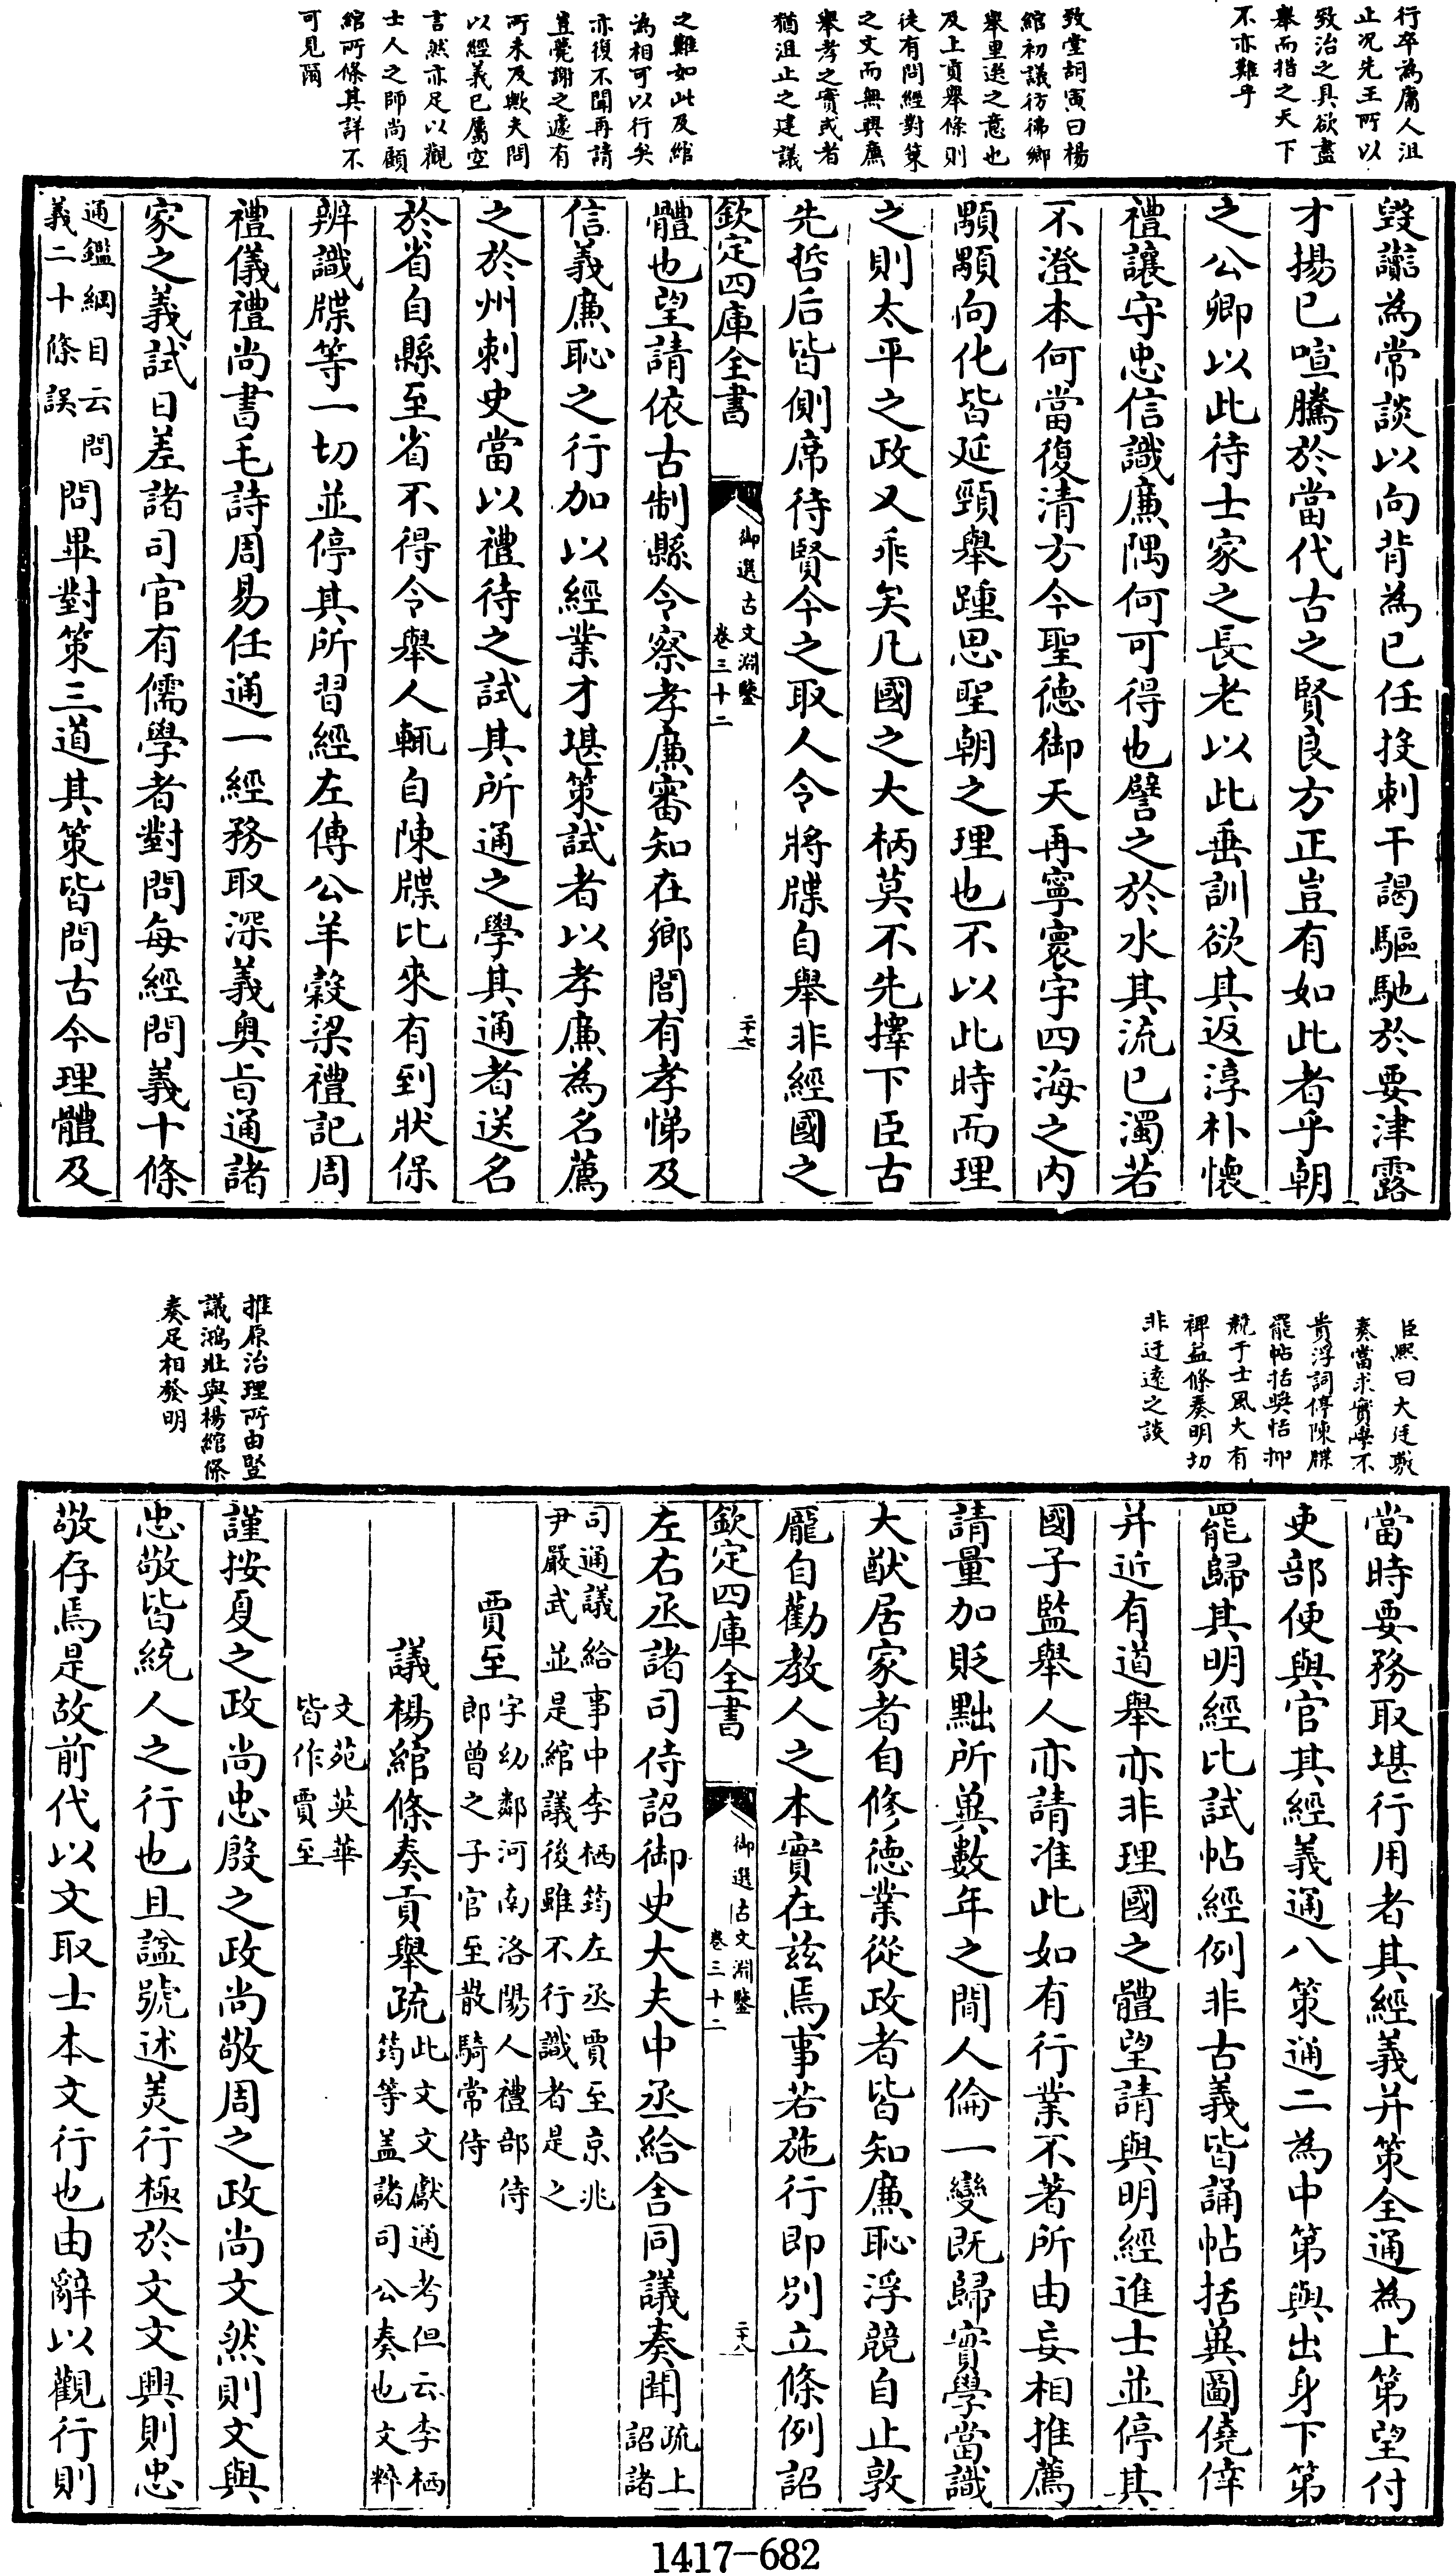 行卒為庸人沮
止况先王所以
致治之具欲盡
舉而措之天下
不亦難乎
致堂胡寅曰楊
綰初議彷彿鄉
舉里選之意也
及上貢舉條則
徒有問經對策
之文而無興廉
舉孝之實或者
猶沮止之建議
之難如此及綰
為相可以行矣
亦復不聞再請
豈覺謝之遽有
所未及歟夫問
以經義已屬空
言然亦足以觀
士人之師尚顧
綰所條其詳不
可見爾
毀讟為常談以向背為已任投刺干謁驅馳於要津露
才揚已喧騰於當代古之賢良方正豈有如此者乎朝
之公卿以此待士家之長老以此垂訓欲其返淳朴懷
禮讓守忠信識廉隅何可得也譬之於水其流已濁若
不澄本何當復清方今聖德御天再寧寰宇四海之内
顒顒向化皆延頸舉踵思聖朝之理也不以此時而理
之則太平之政又乖矣凡國之大柄莫不先擇下臣古
先哲后皆側席待賢今之取人令將牒自舉非經國之
欽定四庫全書
御選古文淵鑒
卷三十二
二十七
體也望請依古制縣令察孝廉審知在鄉閭有孝悌及
信義廉恥之行加以經業才堪策試者以孝廉為名薦
之於州刺史當以禮待之試其所通之學其通者送名
於省自縣至省不得令舉人輒自陳牒比來有到狀保
辨識牒等一切並停其所習經左傳公羊穀梁禮記周
禮儀禮尚書毛詩周易任通一經務取深義奥旨通諸
家之義試日差諸司官有儒學者對問每經問義十條
通鑑綱目云問
義二十條誤
問畢對策三道其策皆問古今理體及
臣熙曰大廷敷
奏當求實學不
貴浮詞停陳牒
罷帖括與恬抑
競于士風大有
裨益條奏明切
非迂遠之談
推原治理所由暨
議鴻壯與楊綰條
奏足相發明
當時要務取堪行用者其經義并策全通為上第望付
吏部便與官其經義通八策通二為中第與出身下第
罷歸其明經比試帖經例非古義皆誦帖括冀圖僥倖
并近有道舉亦非理國之體望請與明經進士並停其
國子監舉人亦請准此如有行業不著所由妄相推薦
請量加貶黜所冀數年之間人倫一變既歸實學當識
大猷居家者自修德業從政者皆知廉恥浮競自止敦
龎自勸教人之本實在兹焉事若施行即别立條例詔
欽定四庫全書
御選古文淵鑒
卷三十二
二十八
左右丞諸司侍詔御史大夫中丞給舍同議奏聞
疏上
詔諸
司通議給事中李栖筠左丞賈至京兆
尹嚴武並是綰議後雖不行識者是之
賈至
字幼鄰河南洛陽人禮部侍
郎曾之子官至散騎常侍
議楊綰條奏貢舉疏
此文文獻通考但云李栖
筠等盖諸司公奏也文粹
文苑英華
皆作賈至
謹按夏之政尚忠殷之政尚敬周之政尚文然則文與
忠敬皆統人之行也且諡號述美行極於文文興則忠
敬存焉是故前代以文取士本文行也由辭以觀行則
1417-682